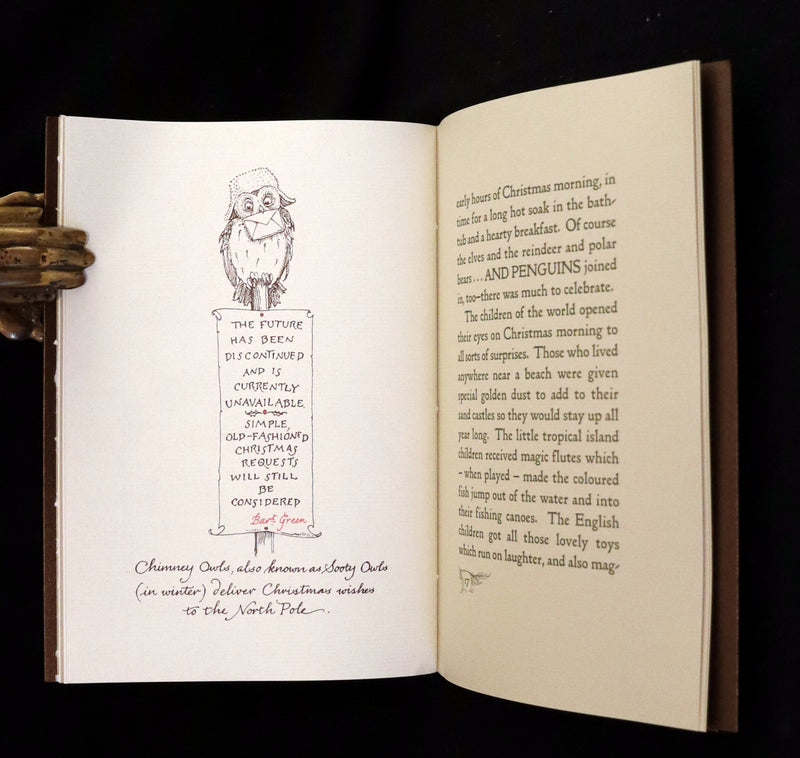 THE FUTURE
HAS BEEN
DISCONTINUED
AND IS
CURRENTLY
UNAVAILABLE.
SIMPLE,
OLD-FASHIONED
CHRISTMAS
REQUESTS
WILL STILL
BE
CONSIDERED
Bart. Green
Chimney Owls, also known as Sooty Owls
(in winter) deliver Christmas wishes
to the North Pole.
early hours of Christmas morning, in
time for a long hot soak in the bath-
tub and a hearty breakfast. Of course
the elves and the reindeer and polar
bears...AND PENGUINS joined
in, too–there was much to celebrate.
The children of the world opened
their eyes on Christmas morning to
all sorts of surprises. Those who lived
anywhere near a beach were given
special golden dust to add to their
sand castles so they would stay up all
year long. The little tropical island
children received magic flutes which
– when played – made the coloured
fish jump out of the water and into
their fishing canoes. The English
children got all those lovely toys
which run on laughter, and also mag-
17